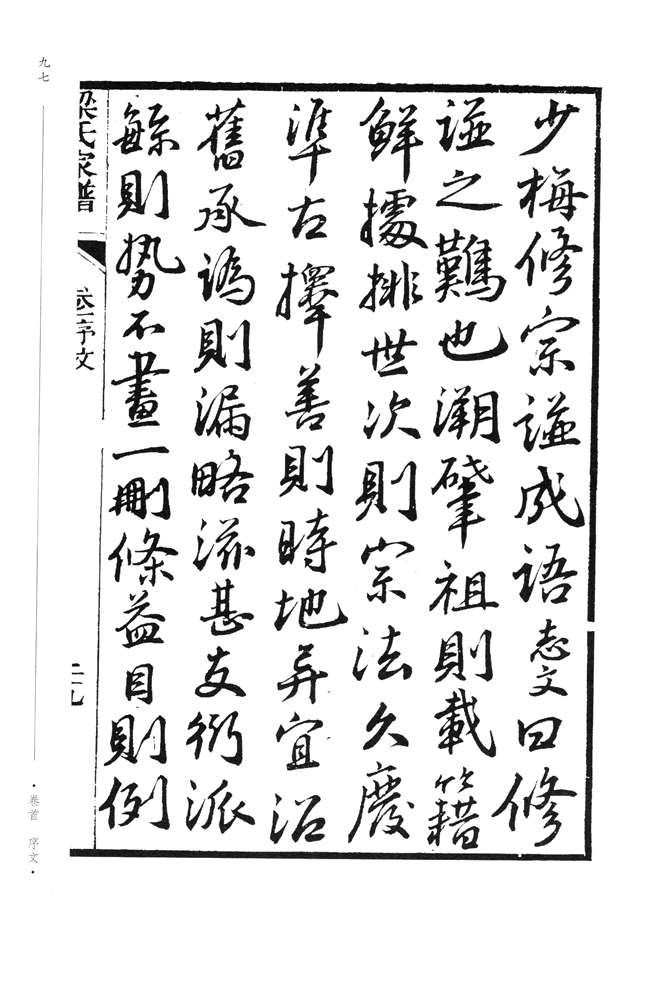 少梅修宗譜成語志文曰修
譜之難也溯肈祖則載籍
鮮據排世次則宗法久廢
準古擇善則時地弃宜沿
舊承譌則漏略滋甚支衍派
繇則勢不畫一刪條益目則例
梁氏家譜
卷一序文
二九
九七
·卷首 序文·